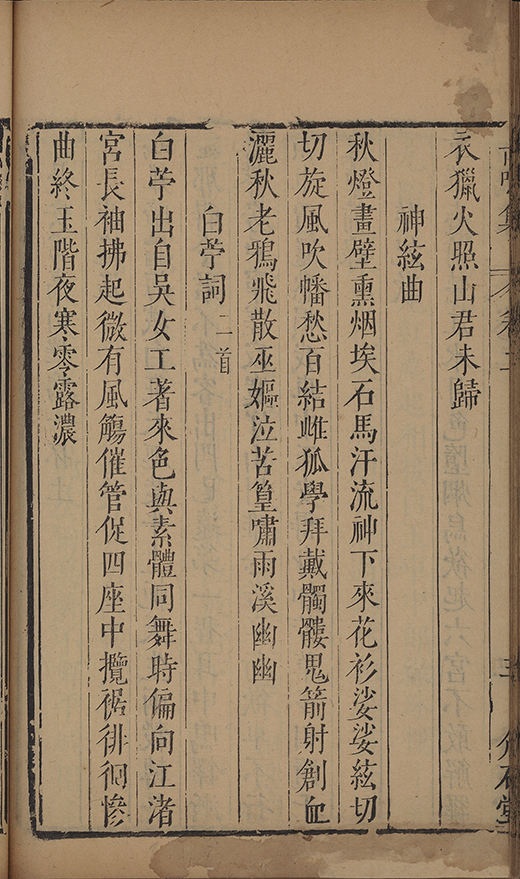 衣獵火照山君未歸
神絃曲
秋燈畫壁熏烟埃石馬汗流神下來花衫娑娑絃切
切旋風吹幡愁百結雌狐學拜戴髑髏鬼箭射創血
灑秋老鴉飛散巫嫗泣苦篁嘯雨溪幽幽
白苧詞二首
白苧出自吳女工著來色與素體同舞時偏向江渚
宮長袖拂起微有風觴催管促四座中攬裾徘徊慘
曲終玉階夜寒零露濃